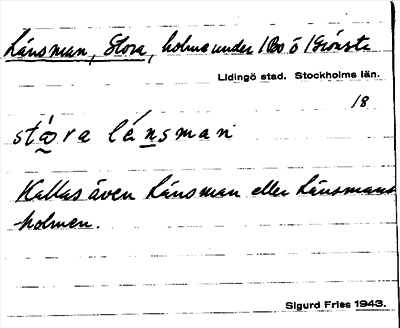 Länsman, Stora, holme under Bo o Grönsta
Lidingö stad. Stockholms län.
18
stǿra lénsman
Kallas även Länsman eller Länsmans-
holmen.
Sigurd Fries 1943.